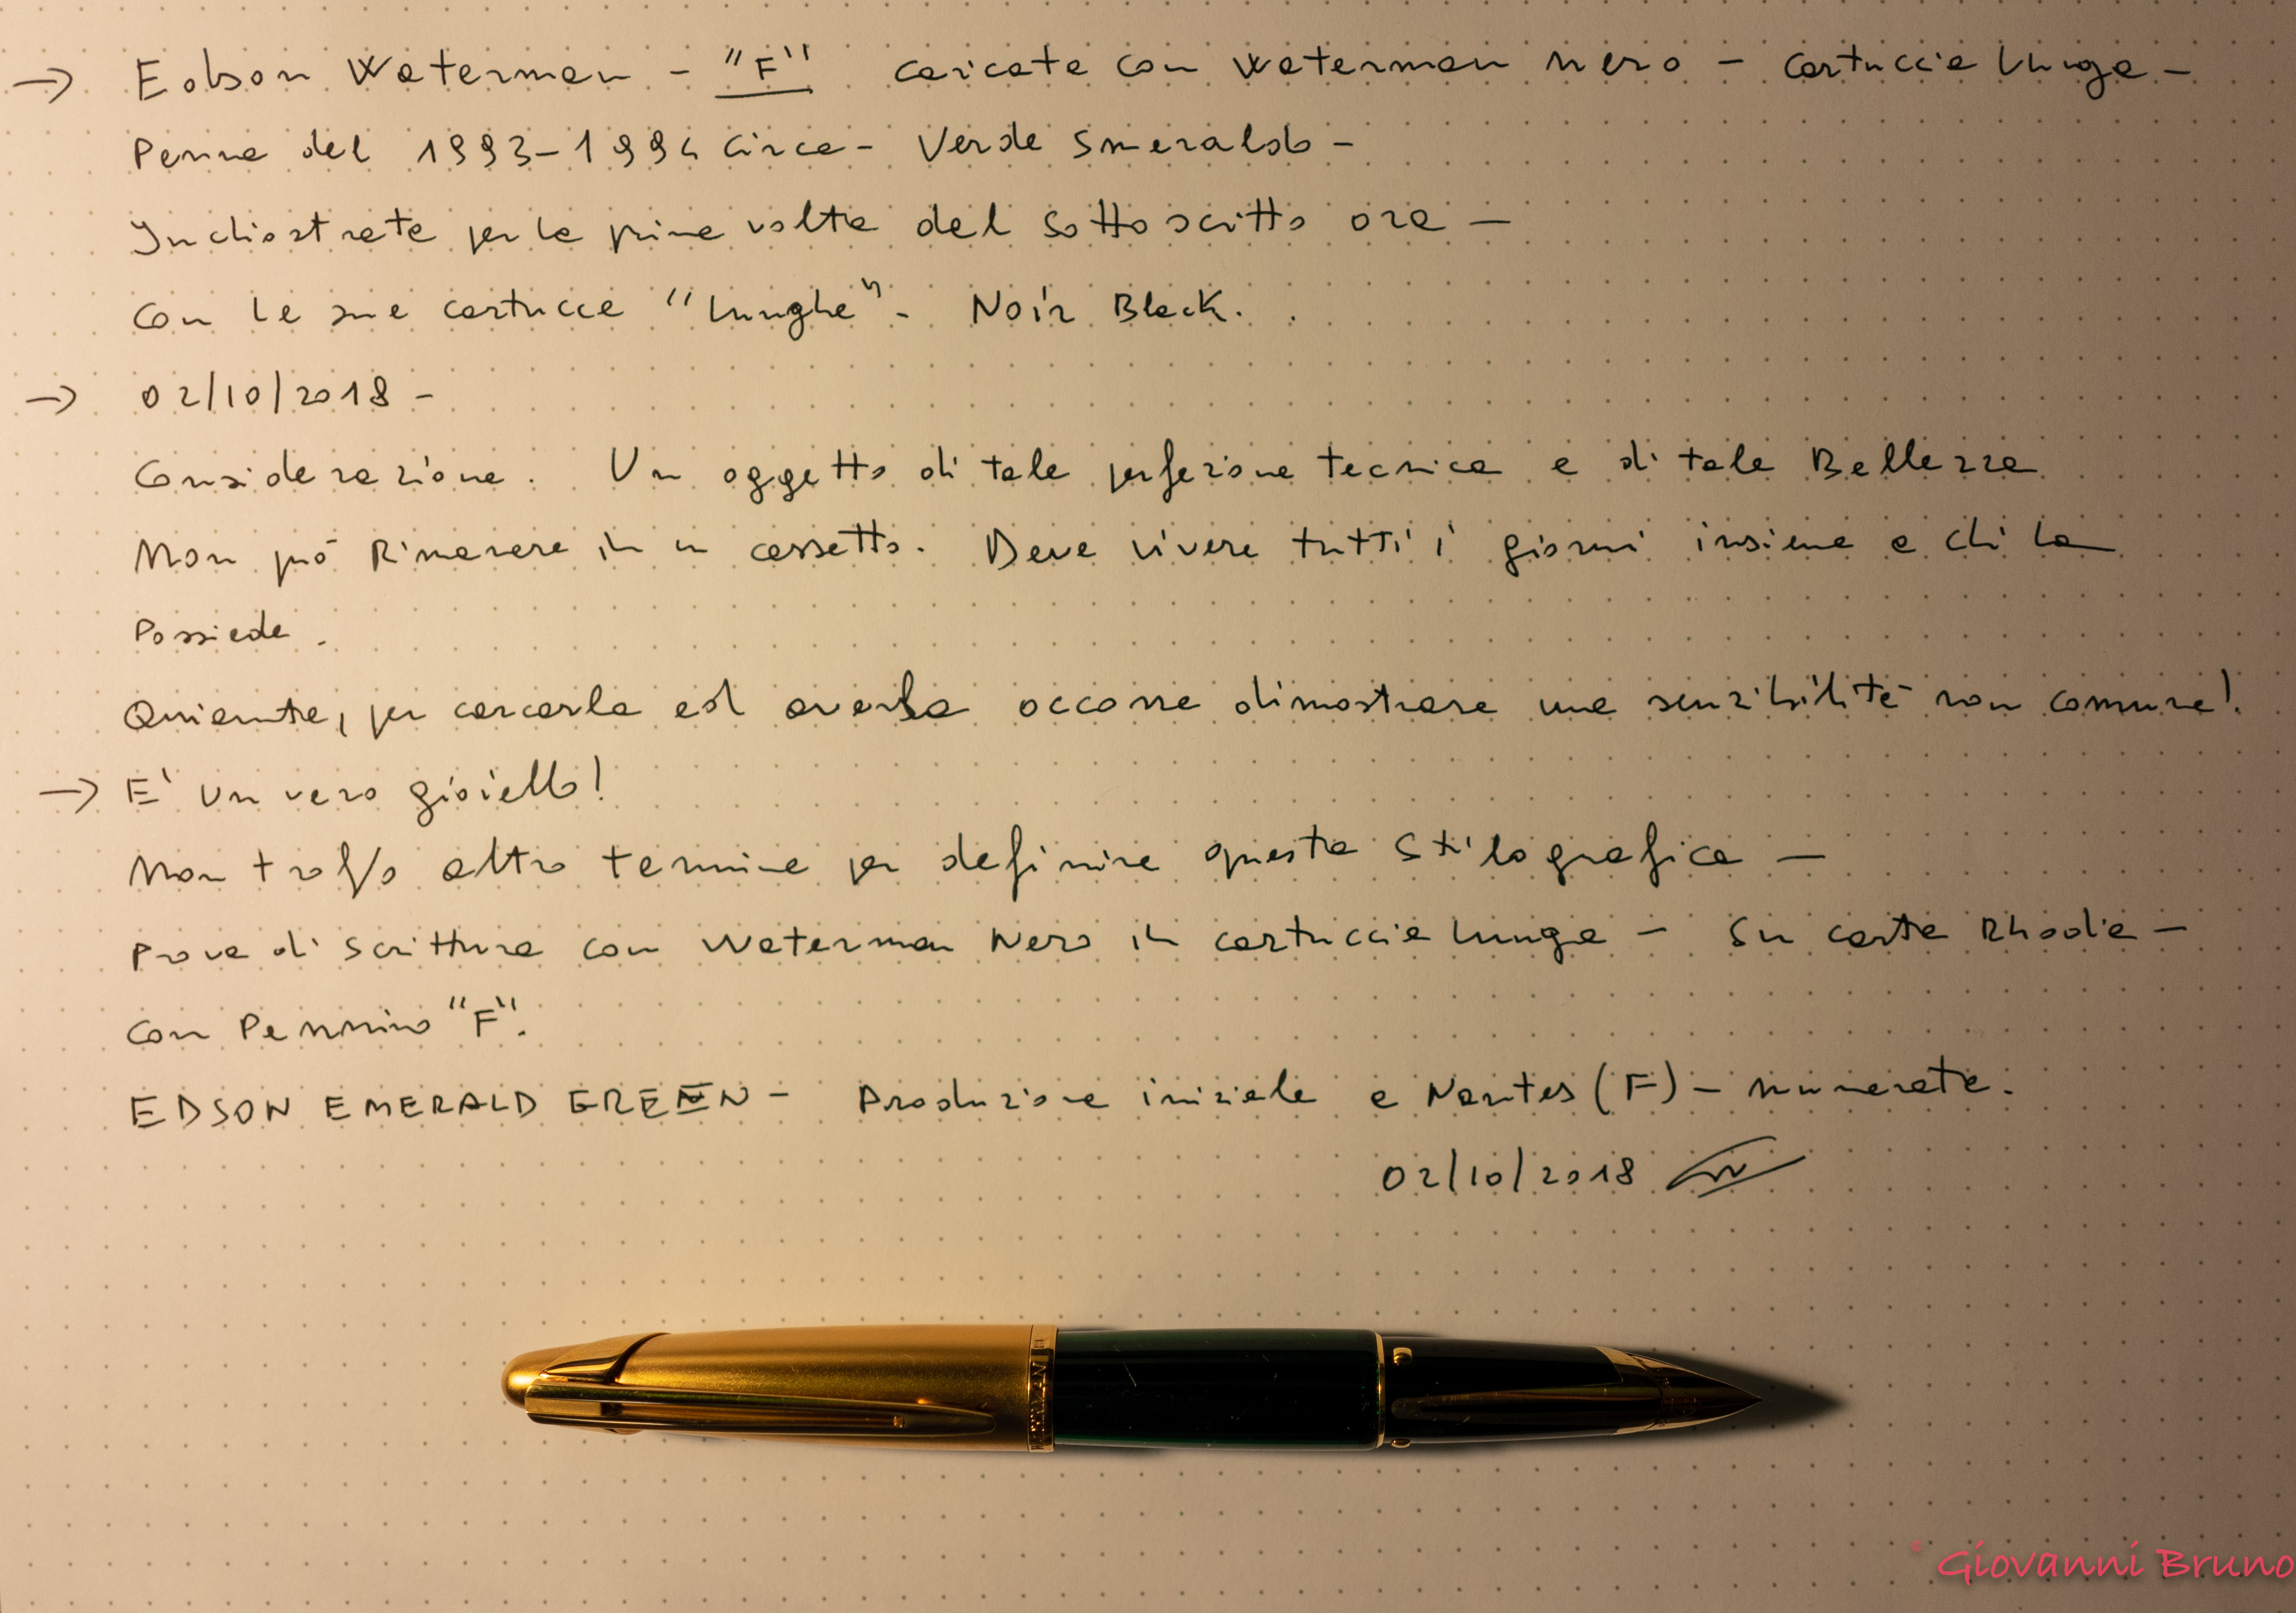 → Edson Waterman - "F" caricata con Waterman nero - cartuccia lunga -
Penna del 1993-1994 circa - Verde Smeraldo -
Inchiostrata per la prima volta dal sottoscritto ora -
Con le sue cartucce "lunghe" - Noir Black.
→ 02/10/2018 -
Considerazione. Un oggetto di tale perfezione tecnica e di tale Bellezza
Non può Rimanere in un cassetto. Deve vivere tutti i giorni insieme a chi la
Possiede.
per cercarla ed averla occorre dimostrare una sensibilità non comune!
→ E' un vero gioiello!
Non trovo altro termine per definire questa Stilografica -
Prova di scrittura con Waterman Nero in cartuccia lunga - Su carta Rhodia -
Con Pennino "F".
EDSON EMERALD GREEN - Produzione iniziale a Nantes (F) - numerata.
02/10/2018
WATERMAN
Giovanni Bruno